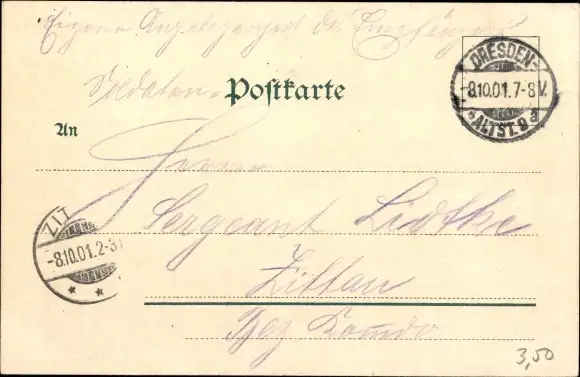 Eigene Angelegenheit des Empfängers
Soldaten-
Postkarte
DRESDEN-
8.10.01.7-8V.
*ALTST.9 a
An
Herrn
Sergeant Lidtke
ZIT
-8.10.01.2-3
* *
Zittau
Bez Komdo
3,50